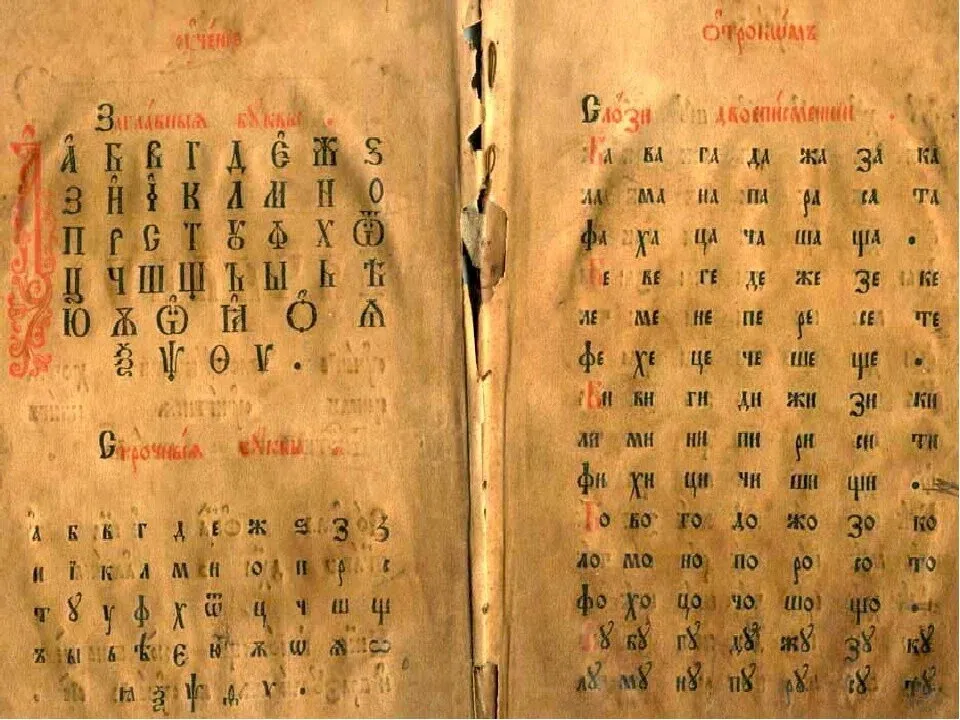 Заглавныя бꙋквы .
А Б В Г Д Є Ж Ѕ
З И І К Л М Н О
П Р С Т Ꙋ Ф Х Ѿ
Ц Ч Ш Щ Ъ Ы Ь Ѣ
Ю Ѫ Ѡ Ꙗ Ѻ Ѧ
Ѯ Ѱ Ѳ Ѵ .
Строчныя бꙋквы
а б в г д е ж ѕ з
и ї к л м н о п р с
т ꙋ у ф х ѿ ц ч ш щ
ъ ы ь ѣ є ю ѫ ѡ ѧ
ѯ ѱ ѵ .
Отрокѡмъ
Слози двоеписменнии .
Ба ва га да жа за ка
ла ма на па ра са та
фа ха ца ча ша ща .
Бе ве ге де же зе ке
ле ме не пе ре се те
фе хе це че ше ще .
Би ви ги ди жи зи ки
ли ми ни пи ри си ти
фи хи ци чи ши щи .
Бо во го до жо зо ко
ло мо но по ро со то
фо хо цо чо шо що .
Бꙋ вꙋ гꙋ дꙋ жꙋ зꙋ кꙋ
лꙋ мꙋ нꙋ пꙋ рꙋ сꙋ тꙋ